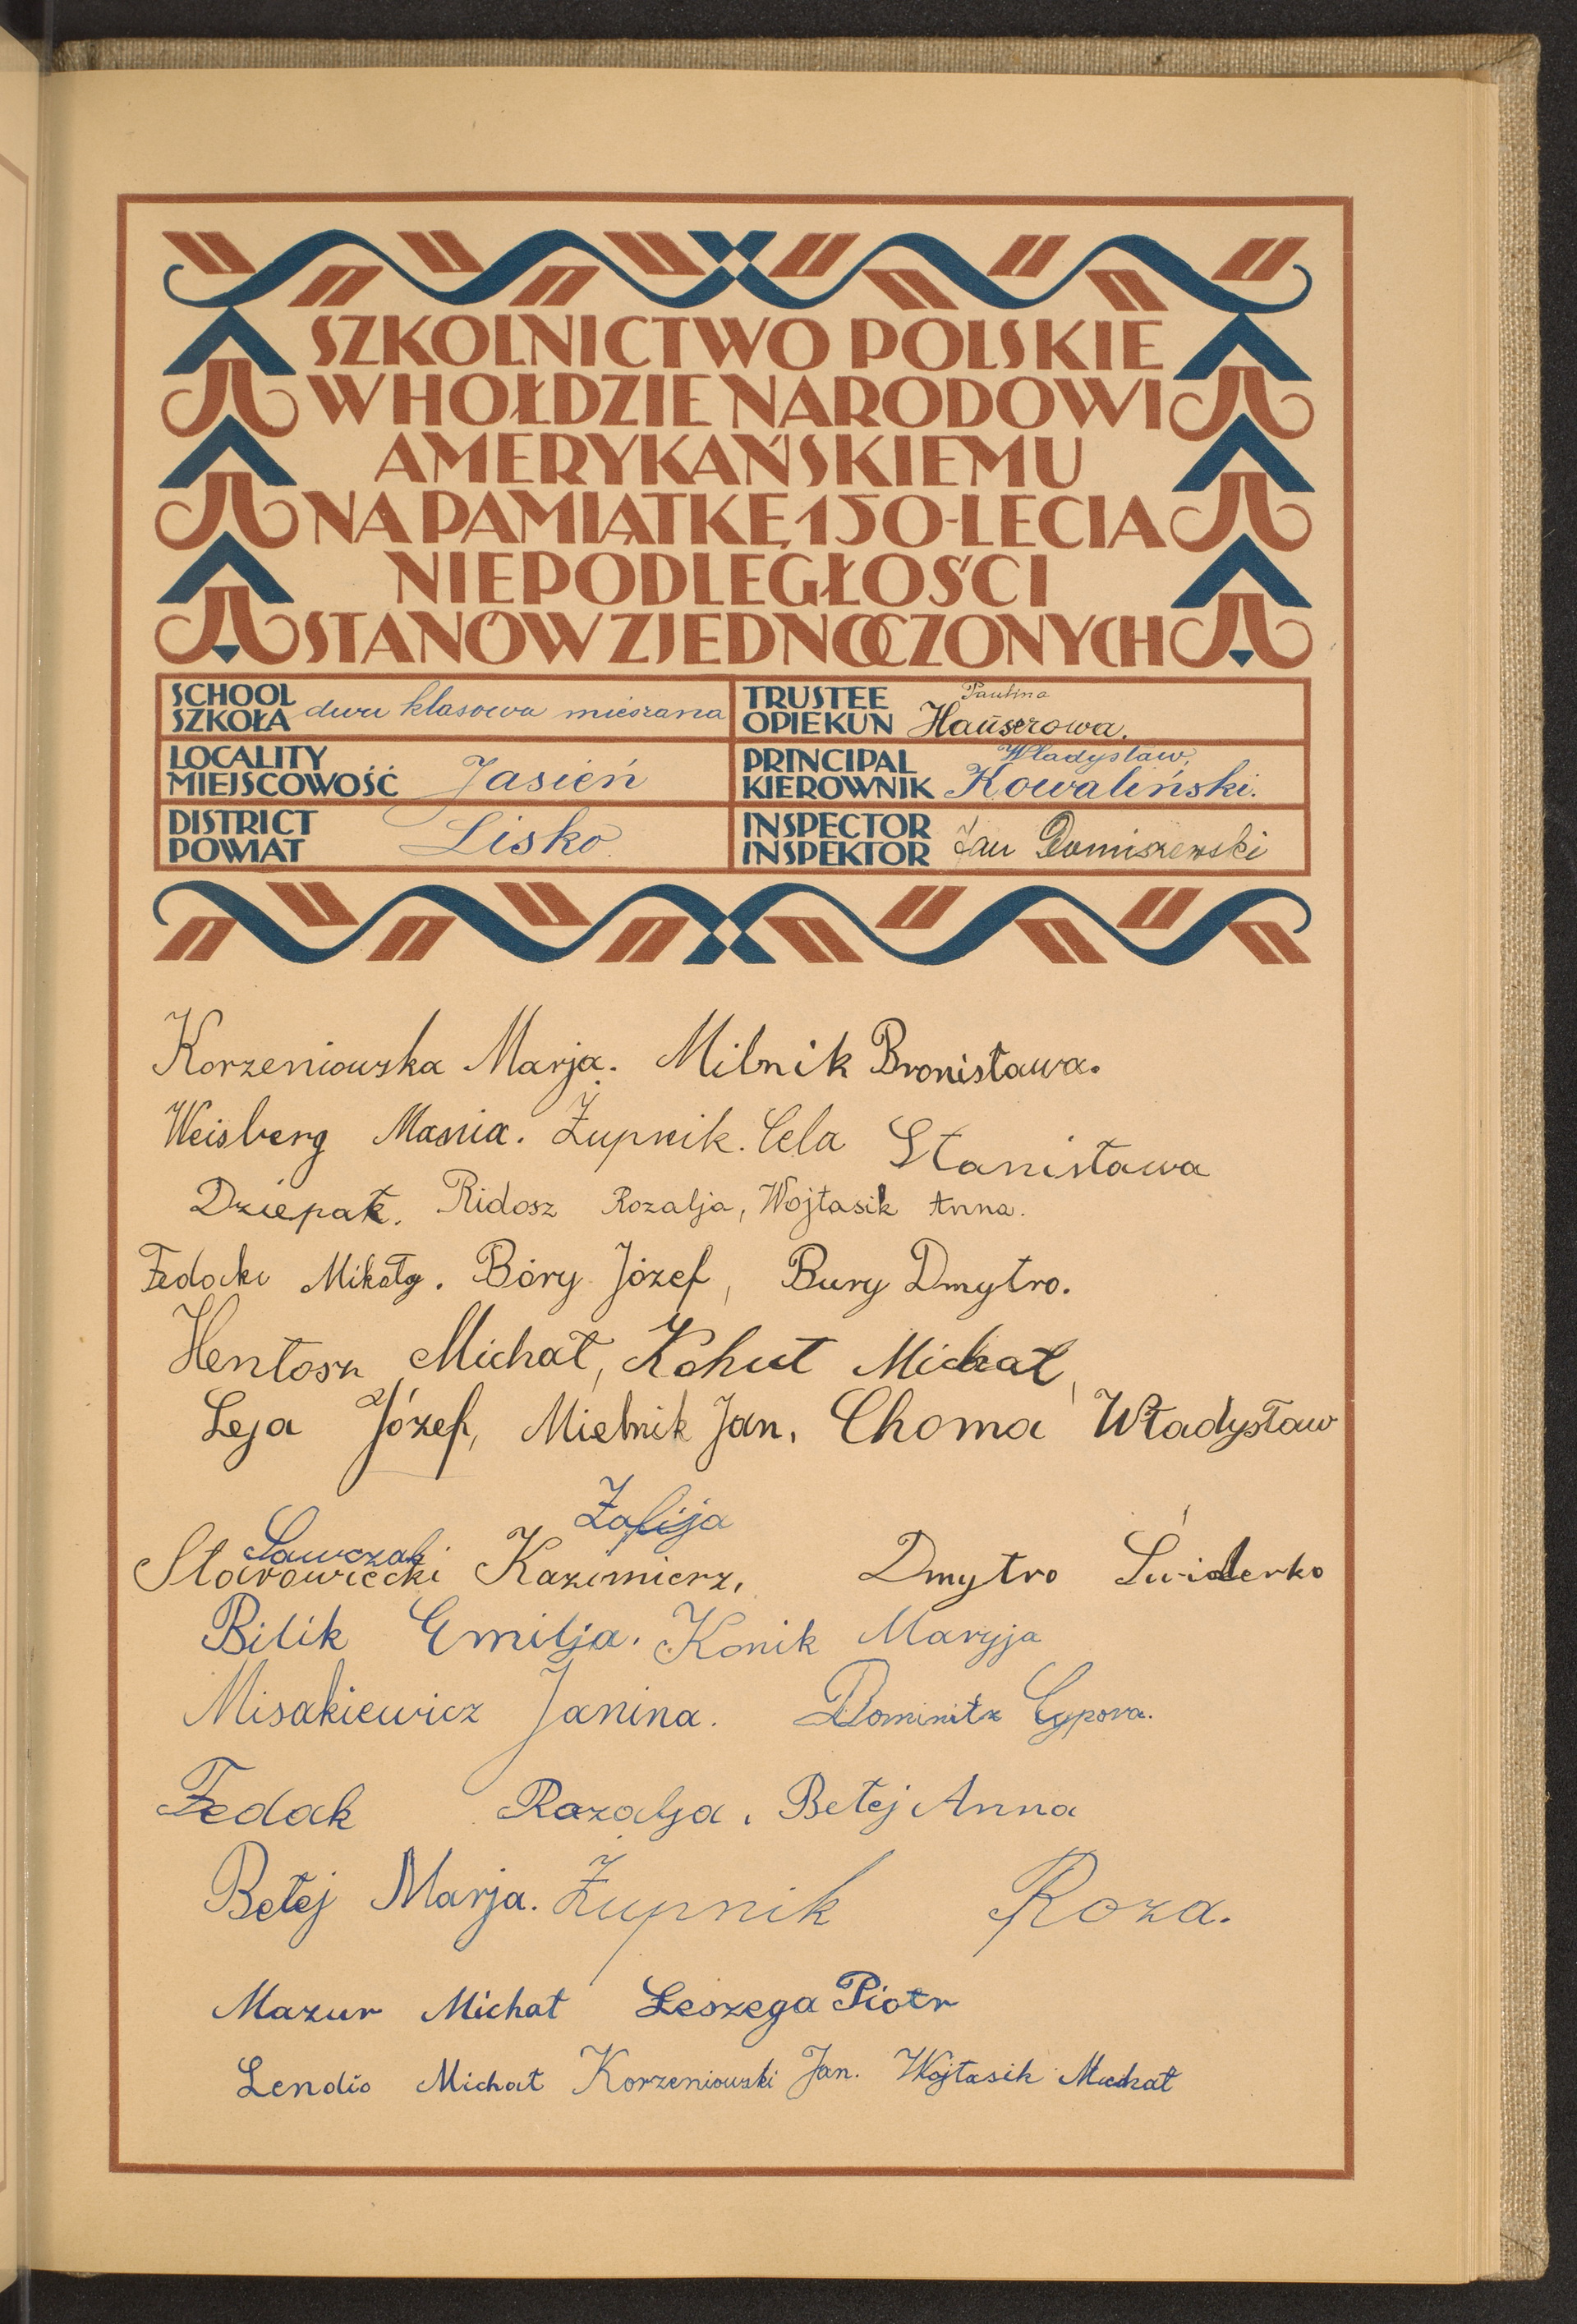 SZKOLNICTWO POLSKIE
W HOŁDZIE NARODOWI
AMERYKAŃSKIEMU
NA PAMIĄTKĘ 150-LECIA
NIEPODLEGŁOŚCI
STANÓW ZJEDNOCZONYCH
SCHOOL
SZKOŁA dwu klasowa mieszana
TRUSTEE Paulina
OPIEKUN Hauserowa.
LOCALITY
MIEJSCOWOŚĆ Jasień
PRINCIPAL Władysław,
KIEROWNIK Kowaliński.
DISTRICT
POWIAT Lisko.
INSPECTOR
INSPEKTOR Jan Domiszewski
Korzeniowska Marja. Milnik Bronisława.
Weisberg Mania. Żupnik. Cela Stanisława
Dziepak. Ridosz Rozalja, Wojtasik Anna.
Fedocki Mikołg. Bóry Józef, Bury Dmytro.
Hentosz Michał, Kohut Michał,
Leja Józef, Mielnik Jan, Choma Władysław
Zofija
Sawczak
Starowiecki Kazimierz, Dmytro Świderko
Bilik Emilja. Konik Maryja
Misakiewicz Janina. Dominitz Cypora.
Fedak Rozalja. Betej Anna
Betej Marja. Żupnik Roza.
Mazur Michał Leszega Piotr
Lendio Michał Korzeniowski Jan. Wojtasik Michał